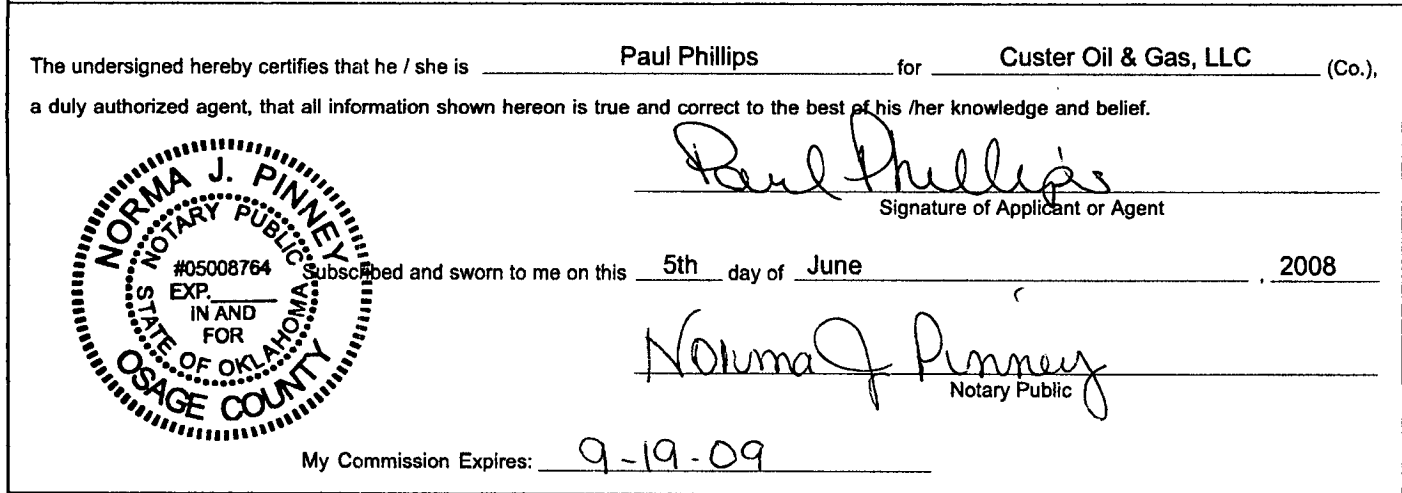 The undersigned hereby certifies that he / she is Paul Phillips for Custer Oil & Gas, LLC (Co.),
a duly authorized agent, that all information shown hereon is true and correct to the best of his /her knowledge and belief.
Paul Phillips
Signature of Applicant or Agent
NORMA J. PINNEY
NOTARY PUBLIC
#05008764
EXP.
IN AND
FOR
STATE OF OKLAHOMA
OSAGE COUNTY
Subscribed and sworn to me on this 5th day of June , 2008
Norma J Pinney
Notary Public
My Commission Expires: 9-19-09